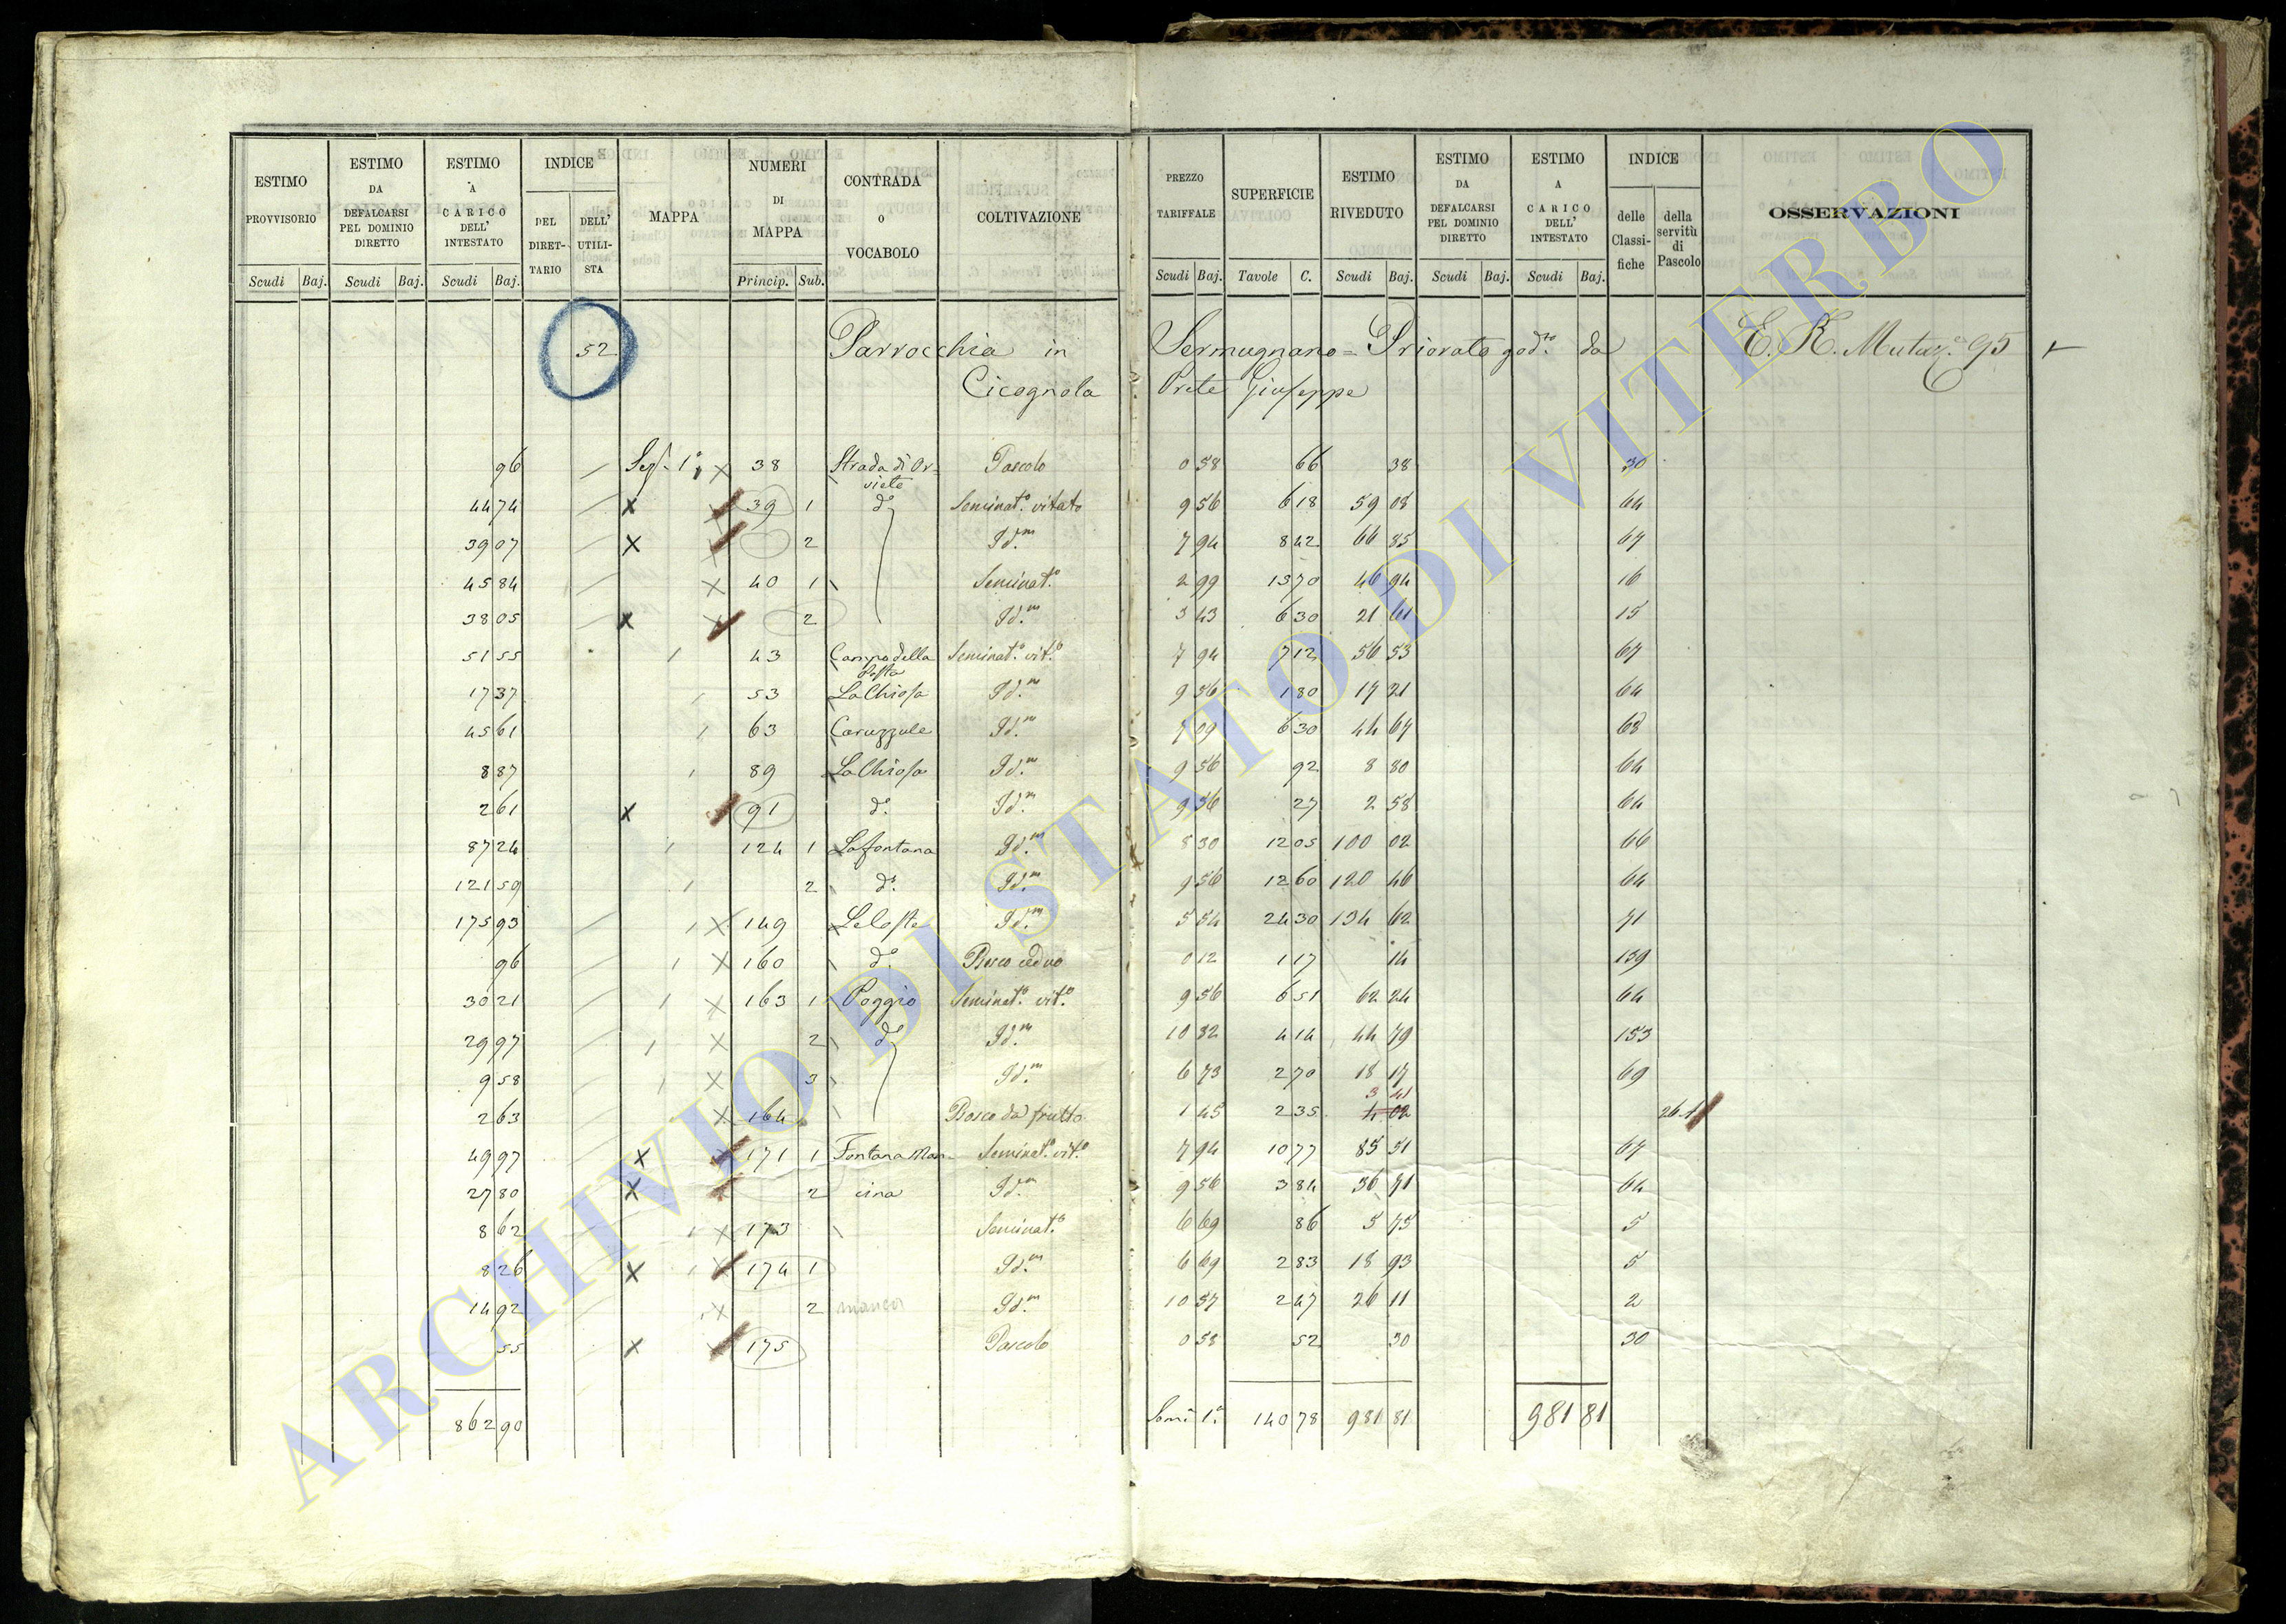 ESTIMO PROVVISORIO Scudi Baj. | ESTIMO DA DEFALCARSI PEL DOMINIO DIRETTO Scudi Baj. | ESTIMO A CARICO DELL' INTESTATO Scudi Baj. | INDICE DEL DIRETTARIO DELL' UTILISTA | MAPPA | NUMERI DI MAPPA Princip. Sub. | CONTRADA O VOCABOLO | COLTIVAZIONE | PREZZO TARIFFALE Scudi Baj. | SUPERFICIE Tavole C. | ESTIMO RIVEDUTO Scudi Baj. | ESTIMO DA DEFALCARSI PEL DOMINIO DIRETTO Scudi Baj. | ESTIMO A CARICO DELL' INTESTATO Scudi Baj. | INDICE delle Classifiche della servitù di Pascolo | OSSERVAZIONI
52 Parrocchia in Sermugnano = Priorato god.to da E. R. Mutaz.e 95
Cicognola Prete Giuseppe
96 Sez. 1a 38 Strada di Orvieto Pascolo 0 58 66 38 30
44 74 X 39 1 d.o Seminat.o vitato 9 56 6 18 59 08 64
39 07 X 2 Id.m 7 94 8 42 66 85 67
45 84 40 1 Seminat.o 2 99 13 70 40 94 16
38 05 X 2 Id.m 3 43 6 30 21 61 15
51 55 43 Campo della Seminat.o vit.o 7 94 7 12 56 53 67
17 37 53 La Chiosa Id.m 9 56 1 80 17 21 64
45 61 63 Caruzzule Id.m 7 09 6 30 44 67 68
8 87 89 La Chiosa Id.m 9 56 92 8 80 64
2 61 X 91 d.o Id.m 9 56 27 2 58 64
87 24 124 1 La fontana Id.m 8 30 12 05 100 02 66
121 59 2 d.o Id.m 9 56 12 60 120 46 64
175 93 X 149 Le Coste Id.m 5 54 24 30 134 62 71
96 X 160 d.o Bosco ceduo 0 12 1 17 14 139
30 21 X 163 1 Poggio Seminat.o vit.o 9 56 6 51 62 24 64
29 97 X 2 d.o Id.m 10 82 4 14 44 79 153
9 58 X 3 Id.m 6 73 2 70 18 17 69
2 63 X 164 Bosco da frutto 1 45 2 35 3 41 4 02 26
49 97 X 171 1 Fontana Man- Seminat.o vit.o 7 94 10 77 85 51 67
27 80 X 2 cina Id.m 9 56 3 84 36 71 64
8 62 X 173 Seminat.o 6 69 86 5 75 5
8 26 X 174 1 Id.m 6 69 2 83 18 93 5
14 92 X 2 manca Id.m 10 57 2 47 26 11 2
55 X 175 Pascolo 0 58 52 30 30
862 90 Som.a 1.a 140 78 981 81 981 81
ARCHIVIO DI STATO DI VITERBO